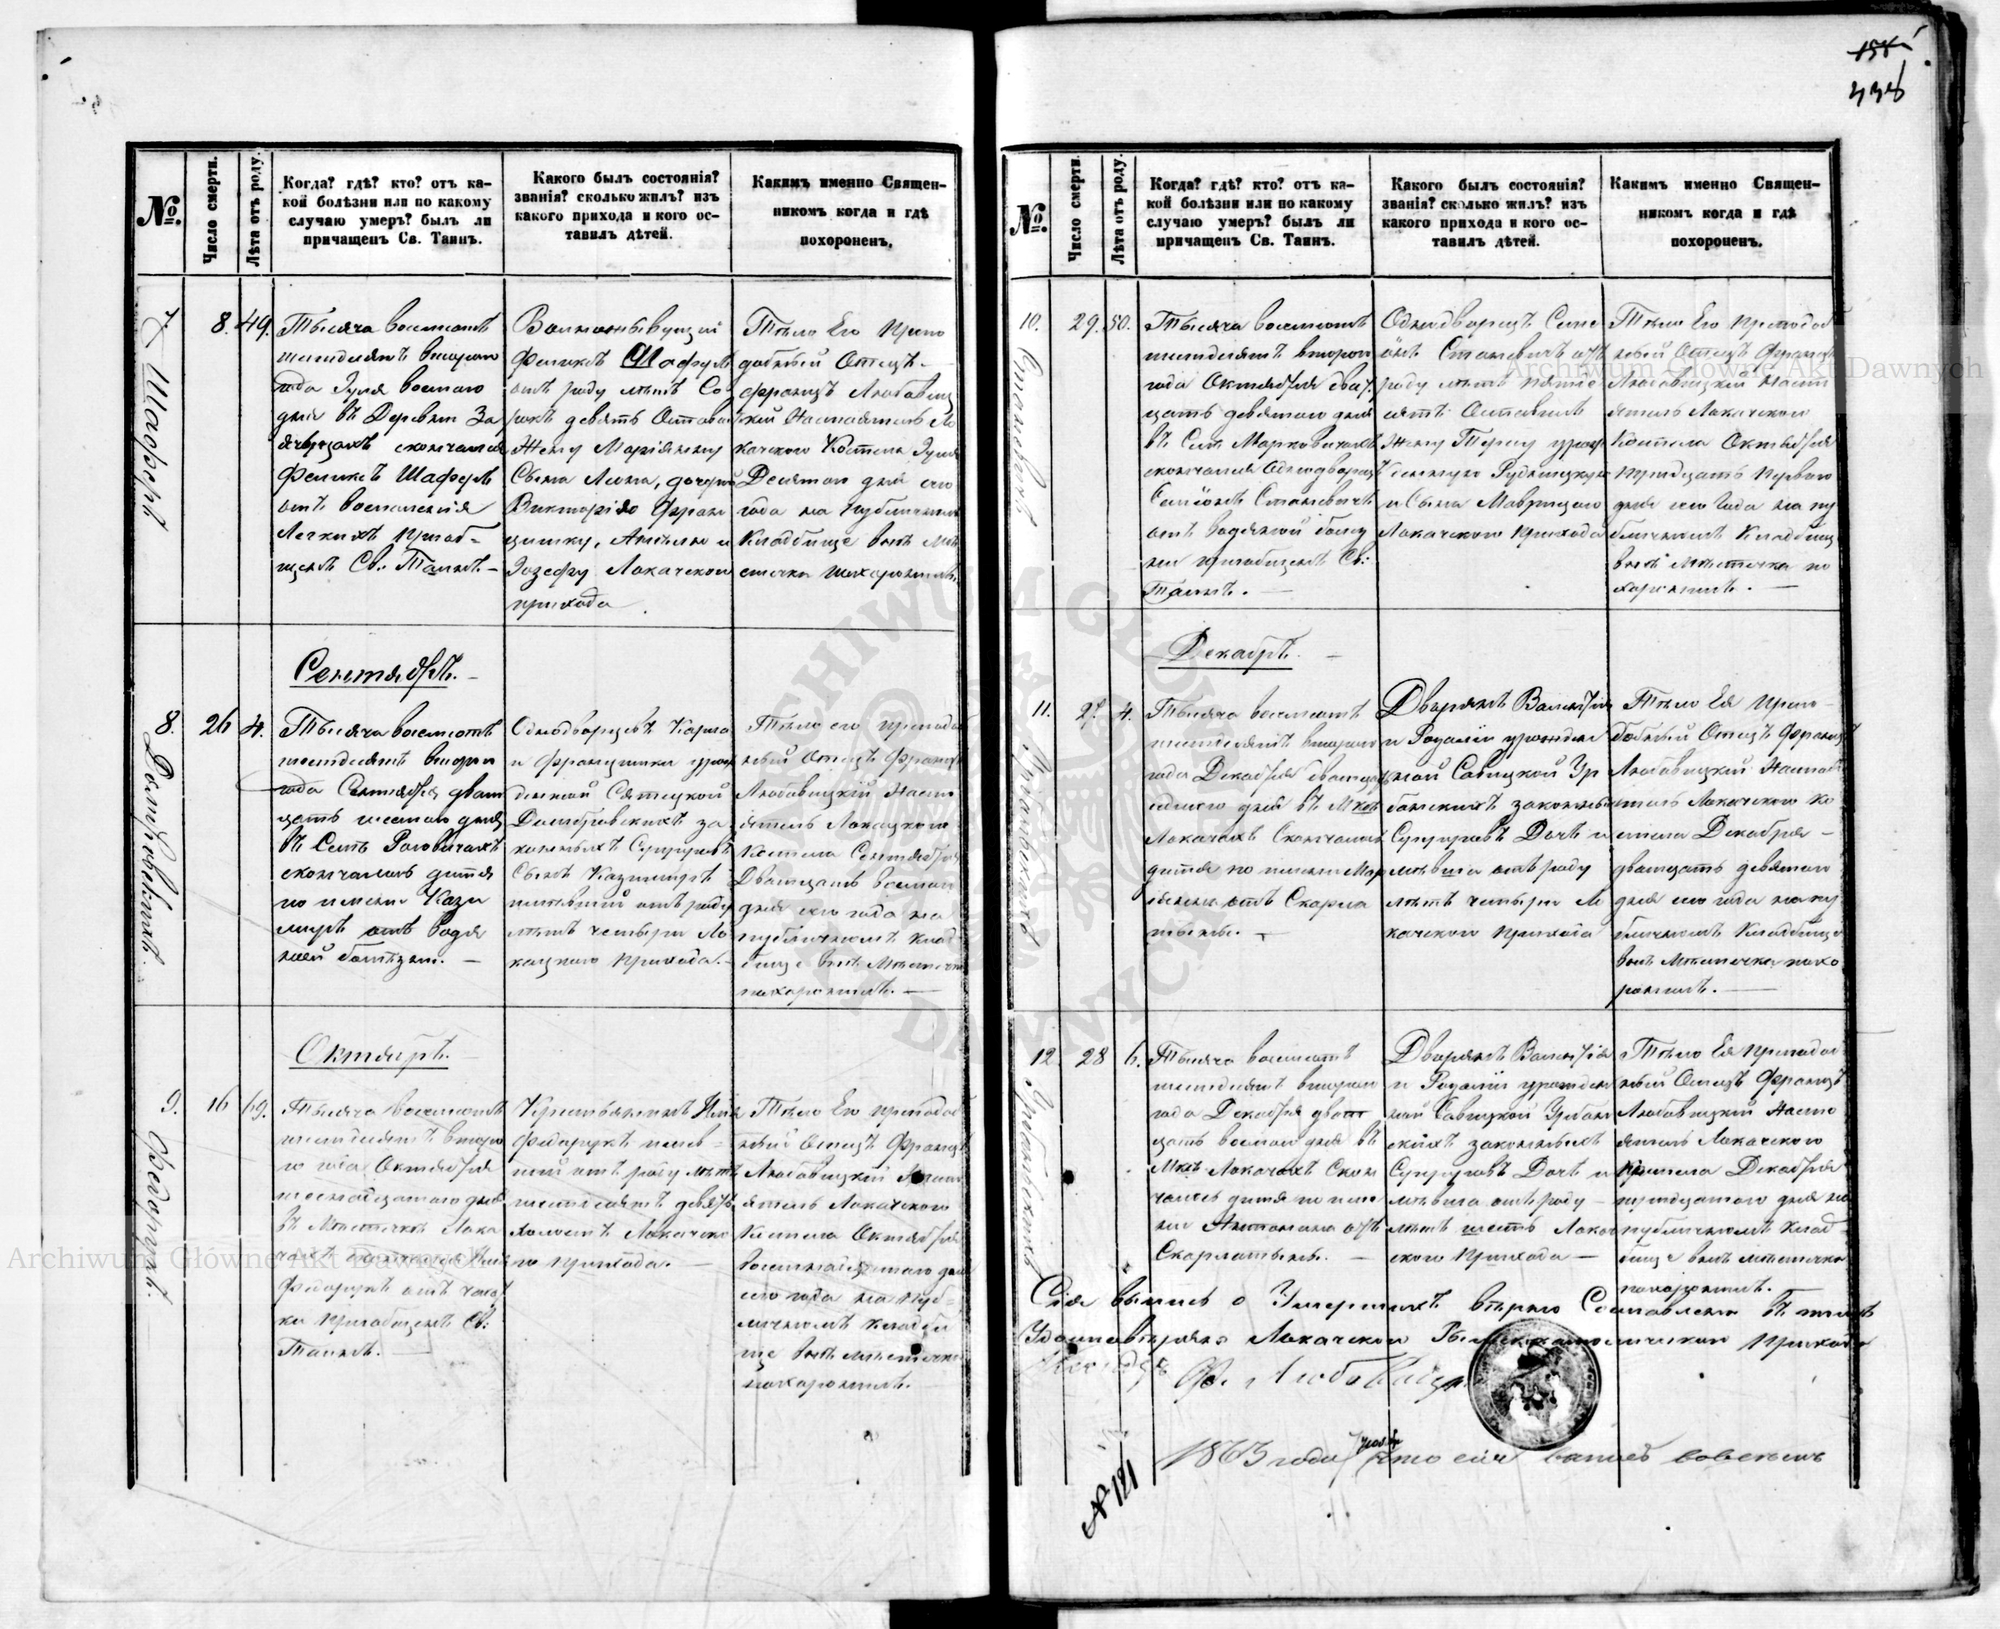 158
438
№.
Число смерти.
Лѣта отъ роду.
Когда? гдѣ? кто? отъ ка-
кой болѣзни или по какому
случаю умеръ? былъ ли
причащенъ Св. Таинъ.
Какого былъ состоянія?
званія? сколько жилъ? изъ
какого прихода и кого ос-
тавилъ дѣтей.
Какимъ именно Священ-
никомъ когда и гдѣ
похороненъ.
7.
Шафоръ
8.
49.
Тысяча восемсотъ
шестдесятъ второго
года Іуля восмого
дня въ Деревни За
скончался
Феликсъ Шаферъ
отъ воспаленія
Легкихъ приоб-
щенъ Св: Таинъ. -
Феликсъ Шаферъ
отъ роду лѣтъ Со
рокъ девять Остави
Жену Маріянну
Сына Леона, дочерей
Викторію Фран
цишку, Анелю и
Іозефу Локачского
прихода.
Тѣло Его Препо
добный Отецъ -
Францъ Любавиц
кій Настоятель Ло
качского Костела Іуля
Десятого дня сего
года на публичномъ
Кладбище внѣ Мѣ
стечка похоронилъ
Сентябрь. -
8.
Домбровскій.
26
4.
Тысяча восемсотъ
шестдесятъ второго
года Сентября двад
цать шестого дня
въ Селѣ Роговичахъ
скончалось дитя
по имени Кази
миръ отъ водя
ной болѣзни. -
Однодворцевъ Карла
и Францишки урож
денной Сятецкой
Домбровскихъ за
конныхъ Супруговъ
Сынъ Казимиръ
имѣвшій отъ роду
лѣтъ четыри Ло
кацкого прихода. -
Тѣло его преподоб
ный Отецъ Францъ
Любавицкій Насто
ятель Локацкого
Костела Сентября
Двадцать восмого
дня сего года на
публичномъ клад
бище внѣ Мѣстечка
похоронилъ. -
Октябрь. -
9.
Федорукъ.
16
69.
Тысяча восемсотъ
шестдесятъ второ
го года Октября
шеснадцатого дня
въ Мѣстечкѣ Лока
чахъ скончался
Федорукъ отъ чахот
ки приобщенъ Св:
Таинъ. -
Крестьянинъ
Федорукъ
отъ роду лѣтъ
шестдесятъ девять
Холостъ Локачско
го прихода. -
Тѣло Его преподоб
ный Отецъ Францъ
Любавицкій Насто
ятель Локачского
Костела Октября
восемнадцатого дня
сего года на пуб-
личномъ кладби
ще внѣ мѣстечка
похоронилъ. -
№.
Число смерти.
Лѣта отъ роду.
Когда? гдѣ? кто? отъ ка-
кой болѣзни или по какому
случаю умеръ? былъ ли
причащенъ Св. Таинъ.
Какого былъ состоянія?
званія? сколько жилъ? изъ
какого прихода и кого ос-
тавилъ дѣтей.
Какимъ именно Священ-
никомъ когда и гдѣ
похороненъ.
10.
Становичъ
29.
50.
Тысяча восемсотъ
шестдесятъ второго
года Октября двад
цать девятого дня
въ Селѣ Марковичахъ
скончался Однодворецъ
Семіонъ Становичъ
отъ водяной болѣз
ни приобщенъ Св:
Таинъ. -
Однодворецъ Семі
онъ Становичъ отъ
роду лѣтъ пятьде
сятъ Оставилъ
Жену Терезу урож
денную Рудницкую
и Сына Маврицого
Локачского прихода
Тѣло Его Преподоб
ный Отецъ Францъ
Любавицкій Насто
ятель Локачского
Костела Октября
тридцать первого
дня сего года на пу
бличномъ Кладбищ
внѣ Мѣстечка по
хоронилъ. -
Декабрь. -
11.
Урбанскихъ
27
4.
Тысяча восемсотъ
шестдесятъ второго
года Декабря двадцать
седмого дня въ Мкѣ
Локачахъ Скончалось
дитя по имени Мар
отъ Скарла
тыны. -
Дворянъ Валентія
и Розаліи урожден
ной Савицкой Ур
банскихъ законныхъ
Супруговъ Дочь и
мѣвша отъ роду
лѣтъ четыри Ло
качского прихода
Тѣло Ея Препо-
добный Отецъ Францъ
Любавицкій Насто
ятель Локачского Ко
стела Декабря -
двадцать девятого
дня сего года на пу
бличномъ Кладбище
внѣ Мѣстечка похо
ронилъ. -
12.
Урбанскихъ
28
6.
Тысяча восемсотъ
шестдесятъ второго
года Декабря двад
цать восмого дня въ
Мкѣ Локачахъ Скон
чалось дитя по име
ни Антонина отъ
Скарлатыны. -
Дворянъ Валентія
и Розаліи урожден
ной Савицкой Урбан
скихъ законныхъ
Супруговъ Дочь и
мѣвша отъ роду -
лѣтъ шесть Локач
ского прихода -
Тѣло Ея Преподоб
ный Отецъ Францъ
Любавицкій Насто
ятель Локачского
Костела Декабря
тридцатого дня на
публичномъ клад-
бище внѣ мѣстечка
похоронилъ.
Сія выпись о Умершихъ вѣрно Составлена въ томъ
Удостовѣряю Локачской Римскокатолической приходъ
Ф. Любавицкій
1863 года
что сія
№ 121
Archiwum Główne Akt Dawnych
Archiwum Główne Akt Dawnych
ARCHIWUM GŁÓWNE AKT DAWNYCH